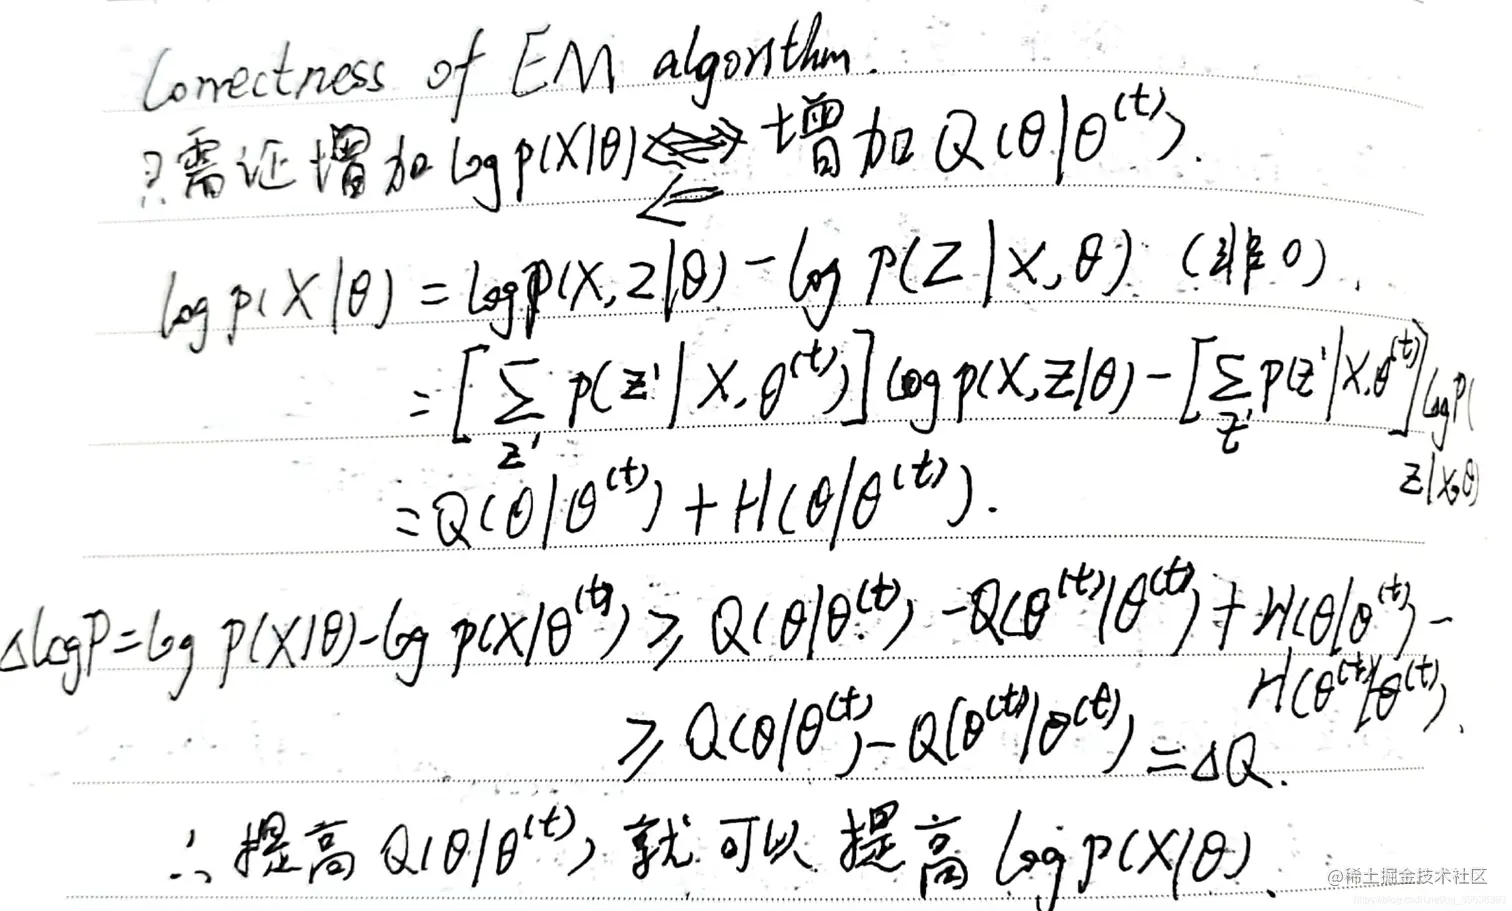 Correctness of EM algorithm.
只需证增加 log p(X|θ) ⇐ 增加 Q(θ|θ^(t)).
log p(X|θ) = log p(X,Z|θ) - log p(Z|X,θ). (非0).
= [∑_z' p(z'|X,θ^(t))] log p(X,Z|θ) - [∑_z' p(z'|X,θ^(t))] log p(
Z|X,θ)
= Q(θ|θ^(t)) + H(θ|θ^(t)).
ΔlogP = log p(X|θ) - log p(X|θ^(t)) ≥ Q(θ|θ^(t)) - Q(θ^(t)|θ^(t)) + H(θ|θ^(t)) -
H(θ^(t)|θ^(t)).
≥ Q(θ|θ^(t)) - Q(θ^(t)|θ^(t)) = ΔQ.
∴ 提高 Q(θ|θ^(t)), 就可以提高 log p(X|θ).
@稀土掘金技术社区